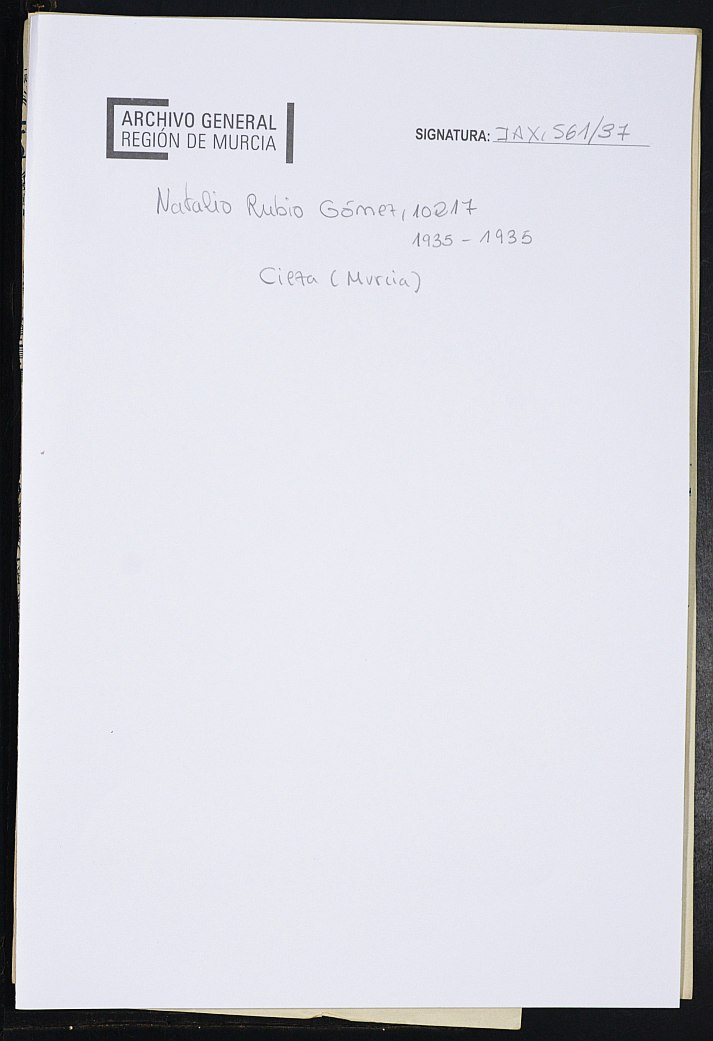 ARCHIVO GENERAL
REGIÓN DE MURCIA
SIGNATURA: JAX, 561/37
Natalio Rubio Gómez, 10217
1935 - 1935
Cieza (Murcia)